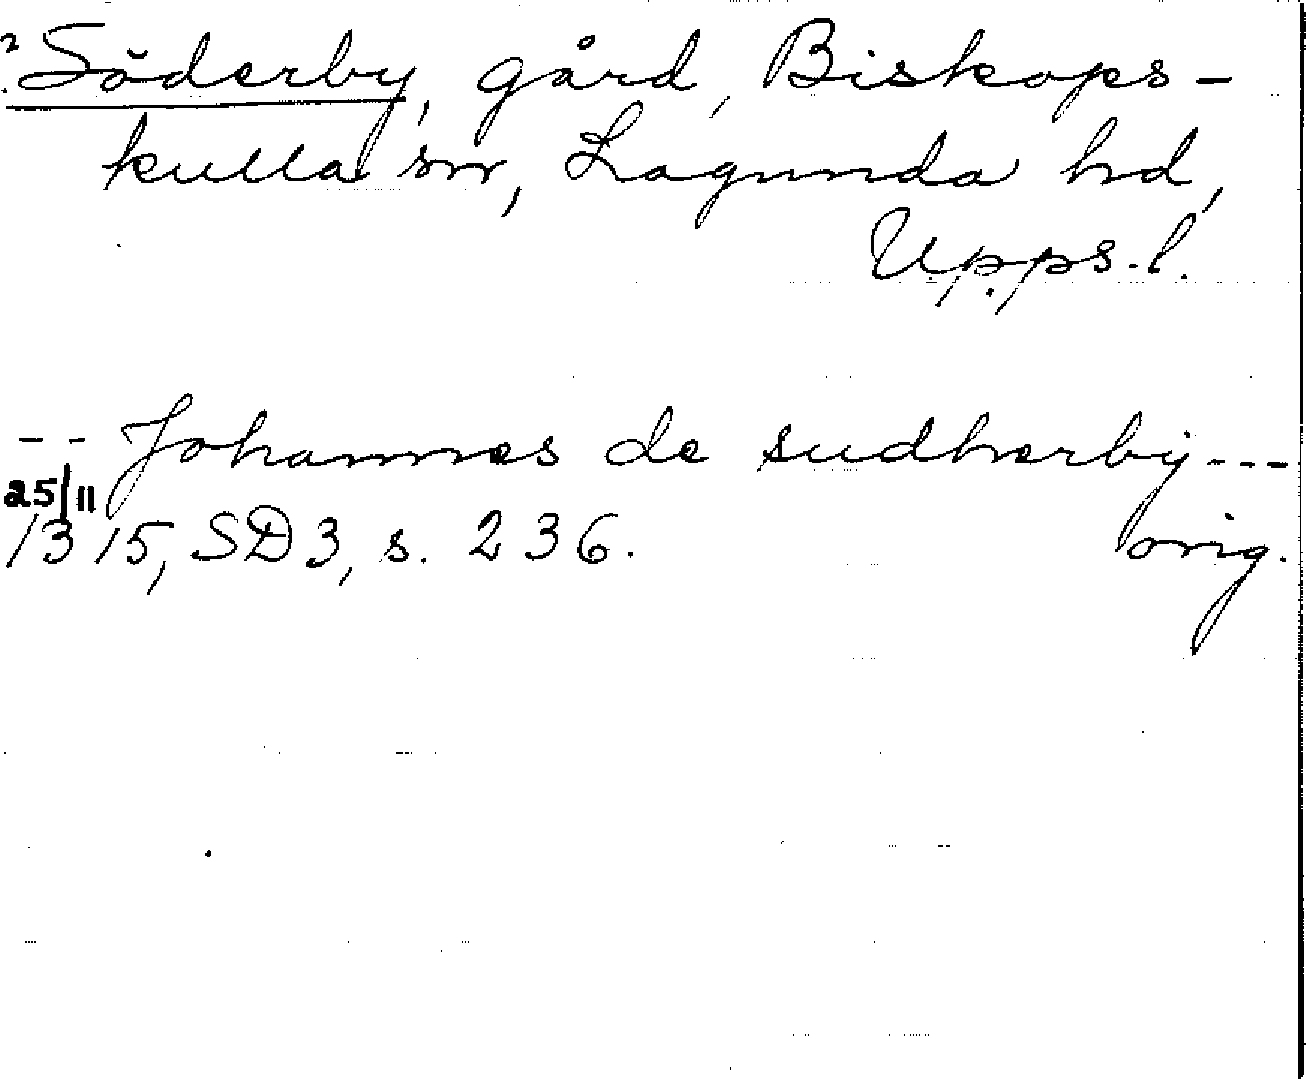 ? Söderby, gård, Biskops-
kulla sn, Lagunda hd,
Upps. l.
-- Johannes de sudherby ---
25/11
1315, SD 3, s. 236. orig.